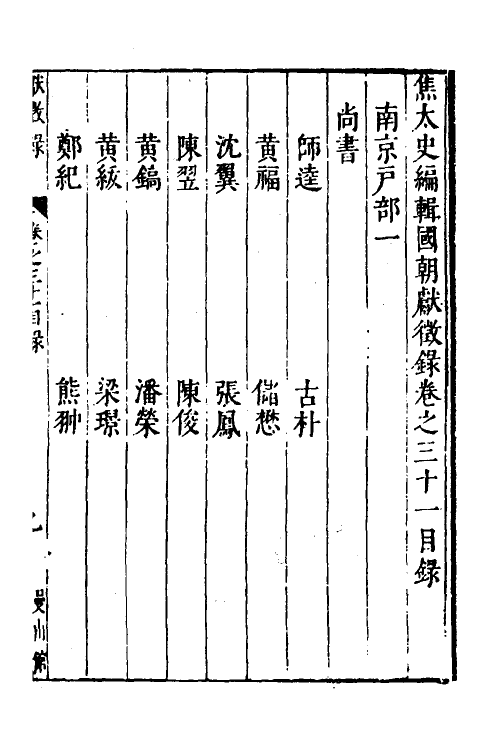 焦太史編輯國朝獻徵錄卷之三十一目錄
南京戸部一
尚書
師逵
古朴
黃福
儲懋
沈翼
張鳳
陳翌
陳俊
黃鎬
潘榮
黃紱
梁璟
鄭紀
熊翀
獻徵錄
卷之三十一目錄
一
曼山館